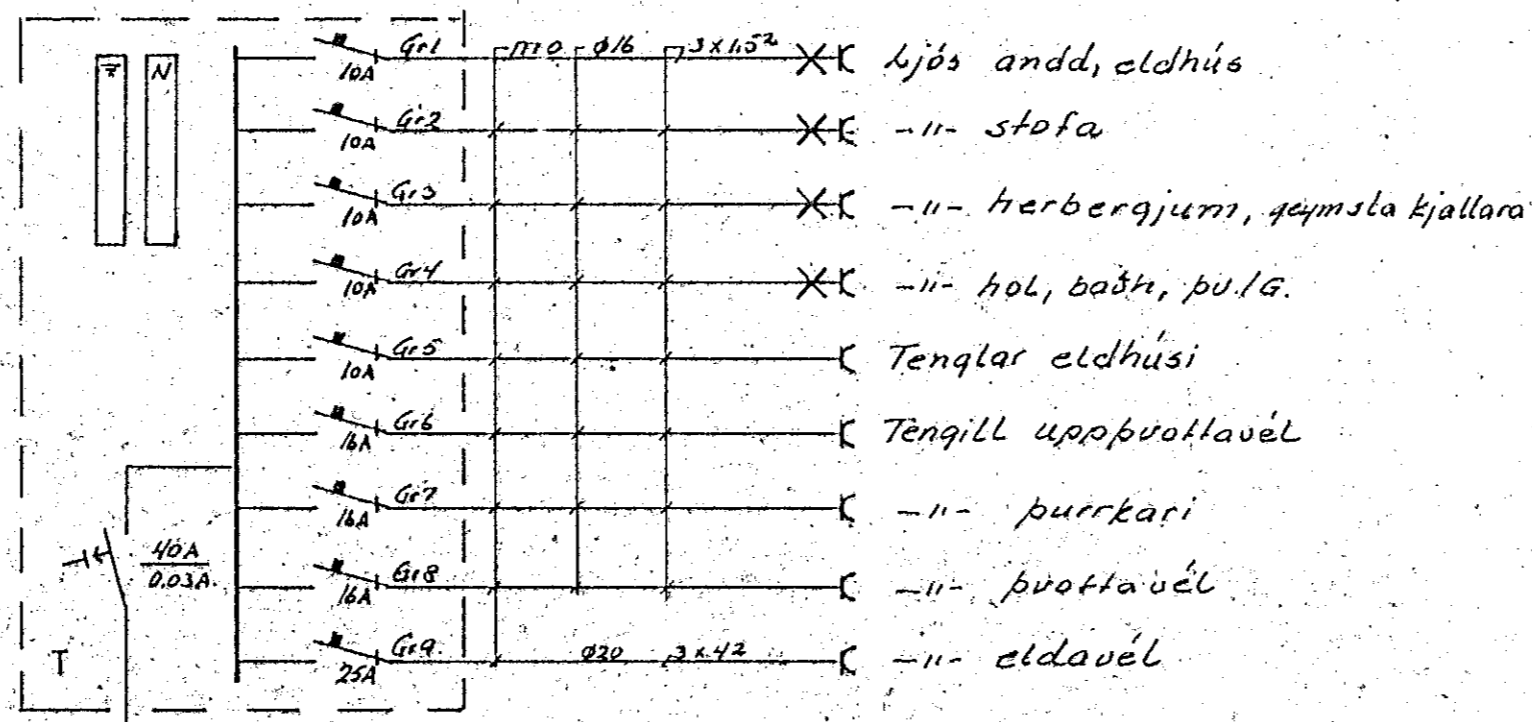 N Gr1 10A m0 ø16 3x1,5² Ljós andd, eldhús
Gr2 10A -"- stofa
Gr3 10A -"- herbergjum, geymsla kjallara
Gr4 10A -"- hol, baðh, þv./G.
Gr5 10A Tenglar eldhúsi
Gr6 16A Tengill uppþvottavél
Gr7 16A -"- þurrkari
40A 0.03A. Gr8 16A -"- þvottavél
T Gr9. 25A ø20 3x4² -"- eldavél